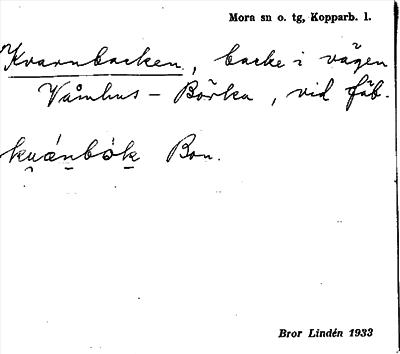 Mora sn o. tg, Kopparb. l.
Kvarnbacken, backe i vägen
Våmhus – Börka, vid fäb.
kuánbòk Bon.
Bror Lindén 1933